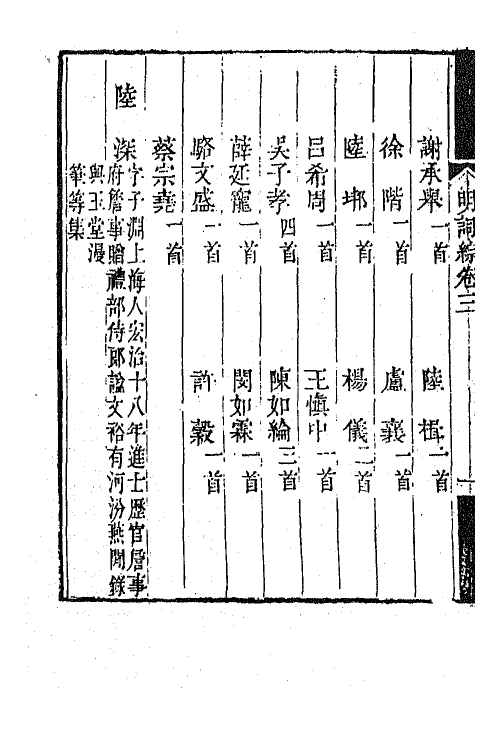 明詞綜卷三 一
謝承舉一首 陸楫一首
徐階一首 盧襄一首
陸垹一首 楊儀二首
呂希周一首 王慎中一首
吳子孝四首 陳如綸三首
薛廷寵一首 閔如霖一首
駱文盛一首 許穀一首
蔡宗堯一首
陸深字子淵上海人宏治十八年進士歷官詹事
府詹事贈禮部侍郎諡文裕有河汾燕閒錄
與玉堂漫
筆等集